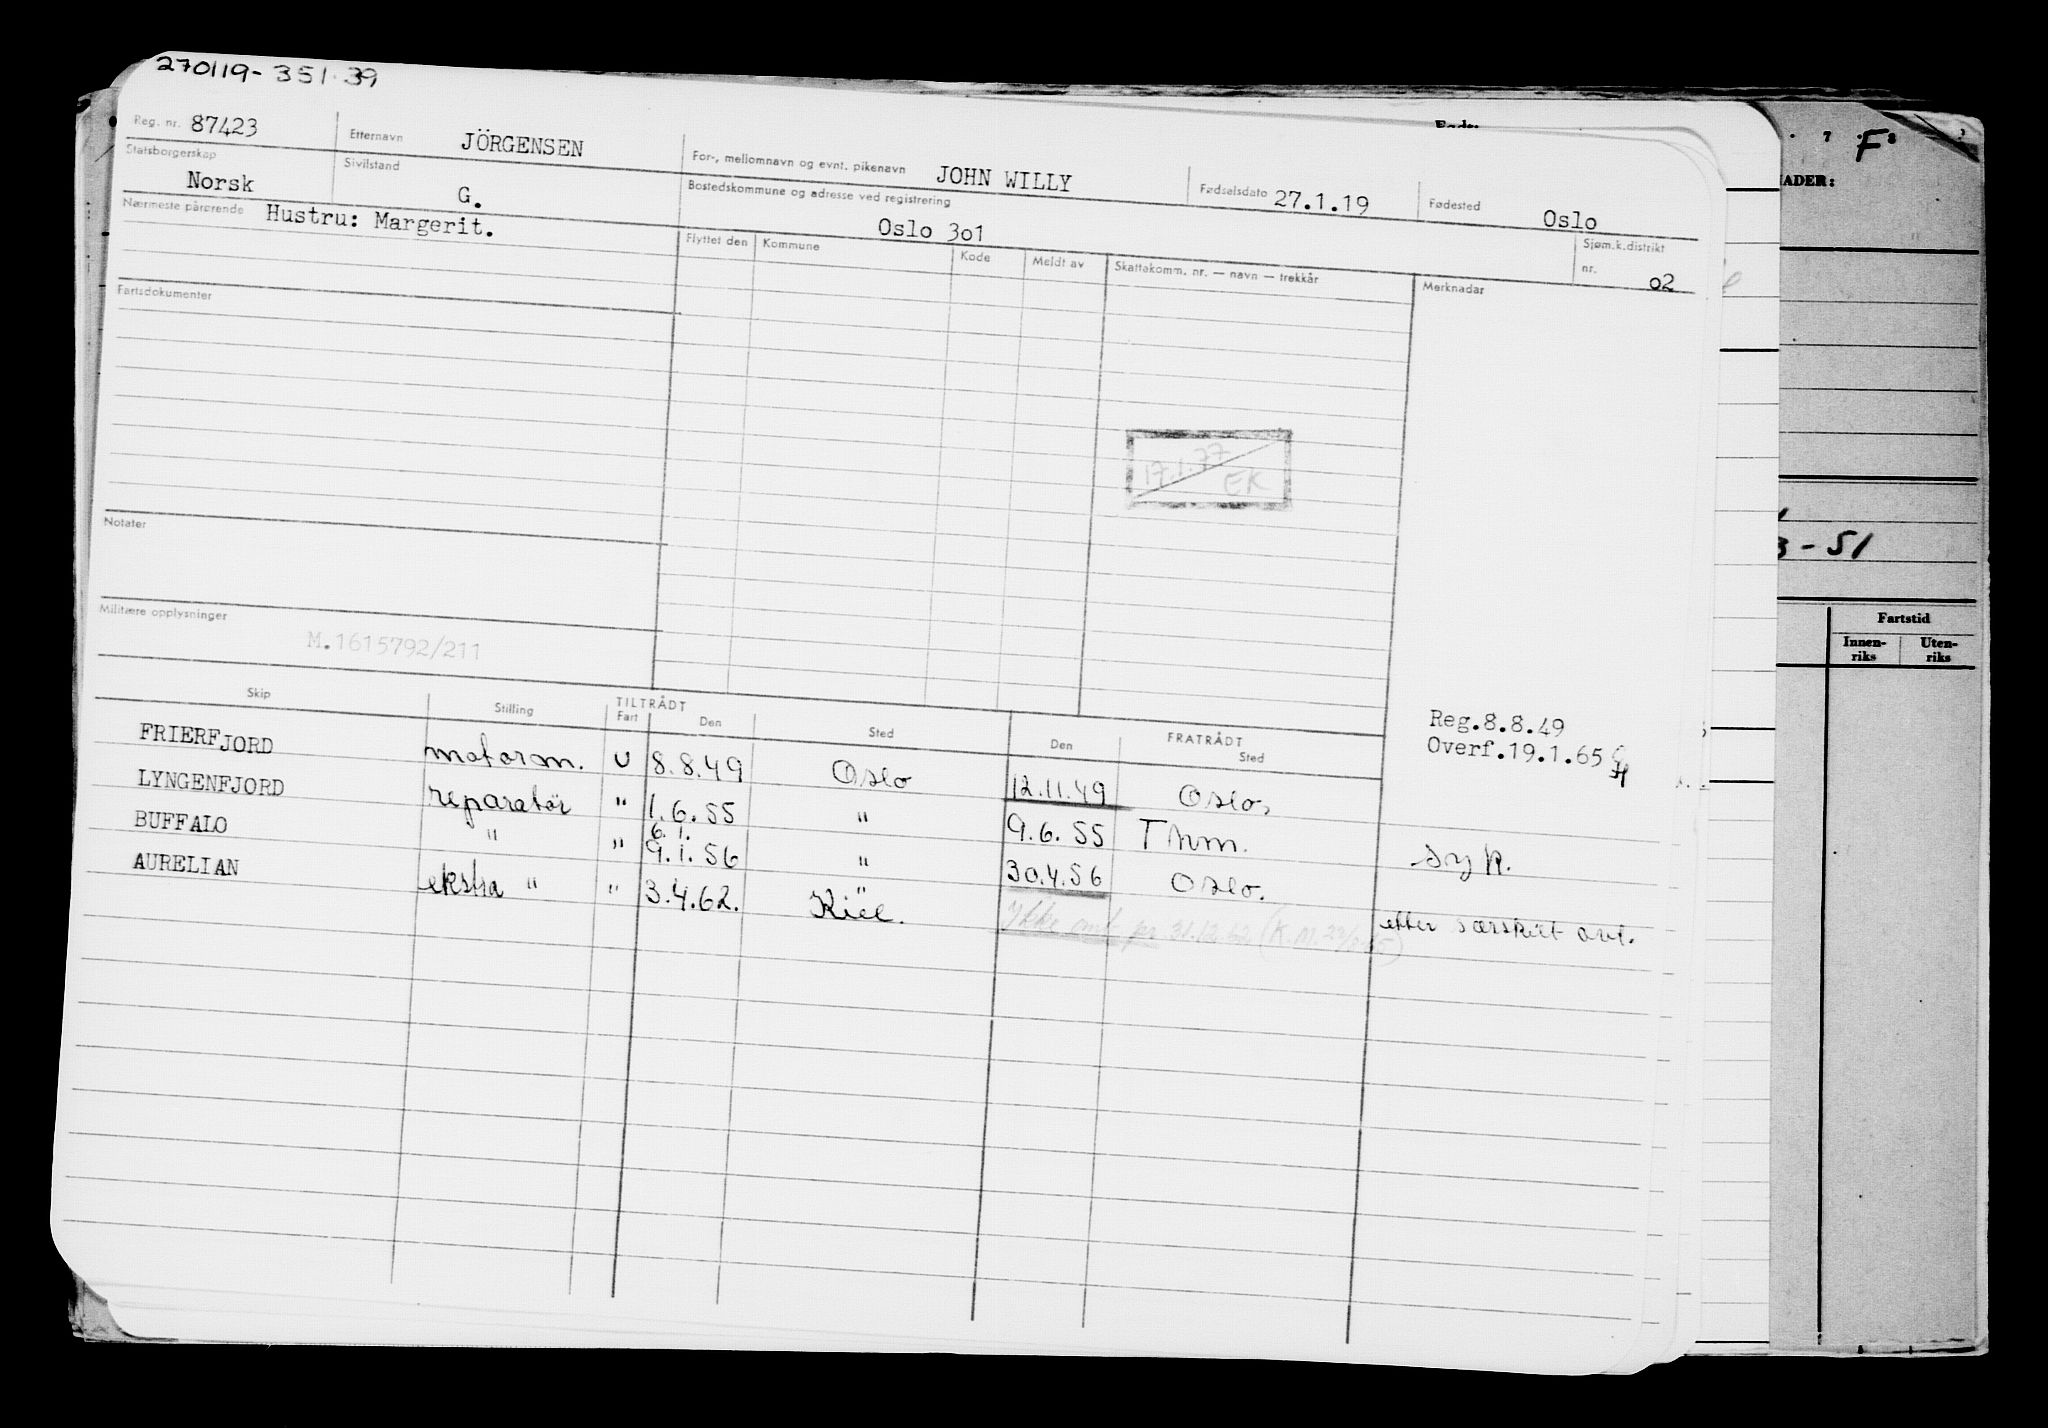 270119-351.39
Reg. nr. 87423 Etternavn JÖRGENSEN For-, mellomnavn og evnt. pikenavn JOHN WILLY Fødselsdato 27.1.19 Fødested Oslo
Statsborgerskap Norsk Sivilstand G. Bostedskommune og adresse ved registrering Oslo 3o1 Sjøm.k.distrikt nr. o2
Nærmeste pårørende Hustru: Margerit.
Flyttet den Kommune Kode Meldt av Skattekomm. nr. — navn — trekkår Merknadar
Fartsdokumenter
17.1.77
EK
Notater
Militære opplysninger
M.1615792/211
Reg.8.8.49
Overf.19.1.65
Skip Stilling TILTRÅDT Fart Den Sted FRATRÅDT Den Sted
FRIERFJORD motorm. U 8.8.49 Oslo 12.11.49 Oslo,
LYNGENFJORD reparatör " 1.6.55 " 9.6.55 Thm. syk.
6.1.
BUFFALO " " 9.1.56 " 30.4.56 Oslo.
AURELIAN ekstra " " 3.4.62. Kiel. Ikke avm. pr. 31.12.62 etter særskilt avt.
7
F
NADER:
3-51
Fartstid
Innen-
riks
Uten-
riks